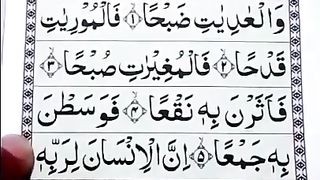 وَالْعٰدِيٰتِ ضَبْحًا ۝۱ فَالْمُوْرِيٰتِ
قَدْحًا ۝۲ فَالْمُغِيْرٰتِ صُبْحًا ۝۳
فَاَثَرْنَ بِهٖ نَقْعًا ۝۴ فَوَسَطْنَ
بِهٖ جَمْعًا ۝۵ اِنَّ الْاِنْسَانَ لِرَبِّهٖ